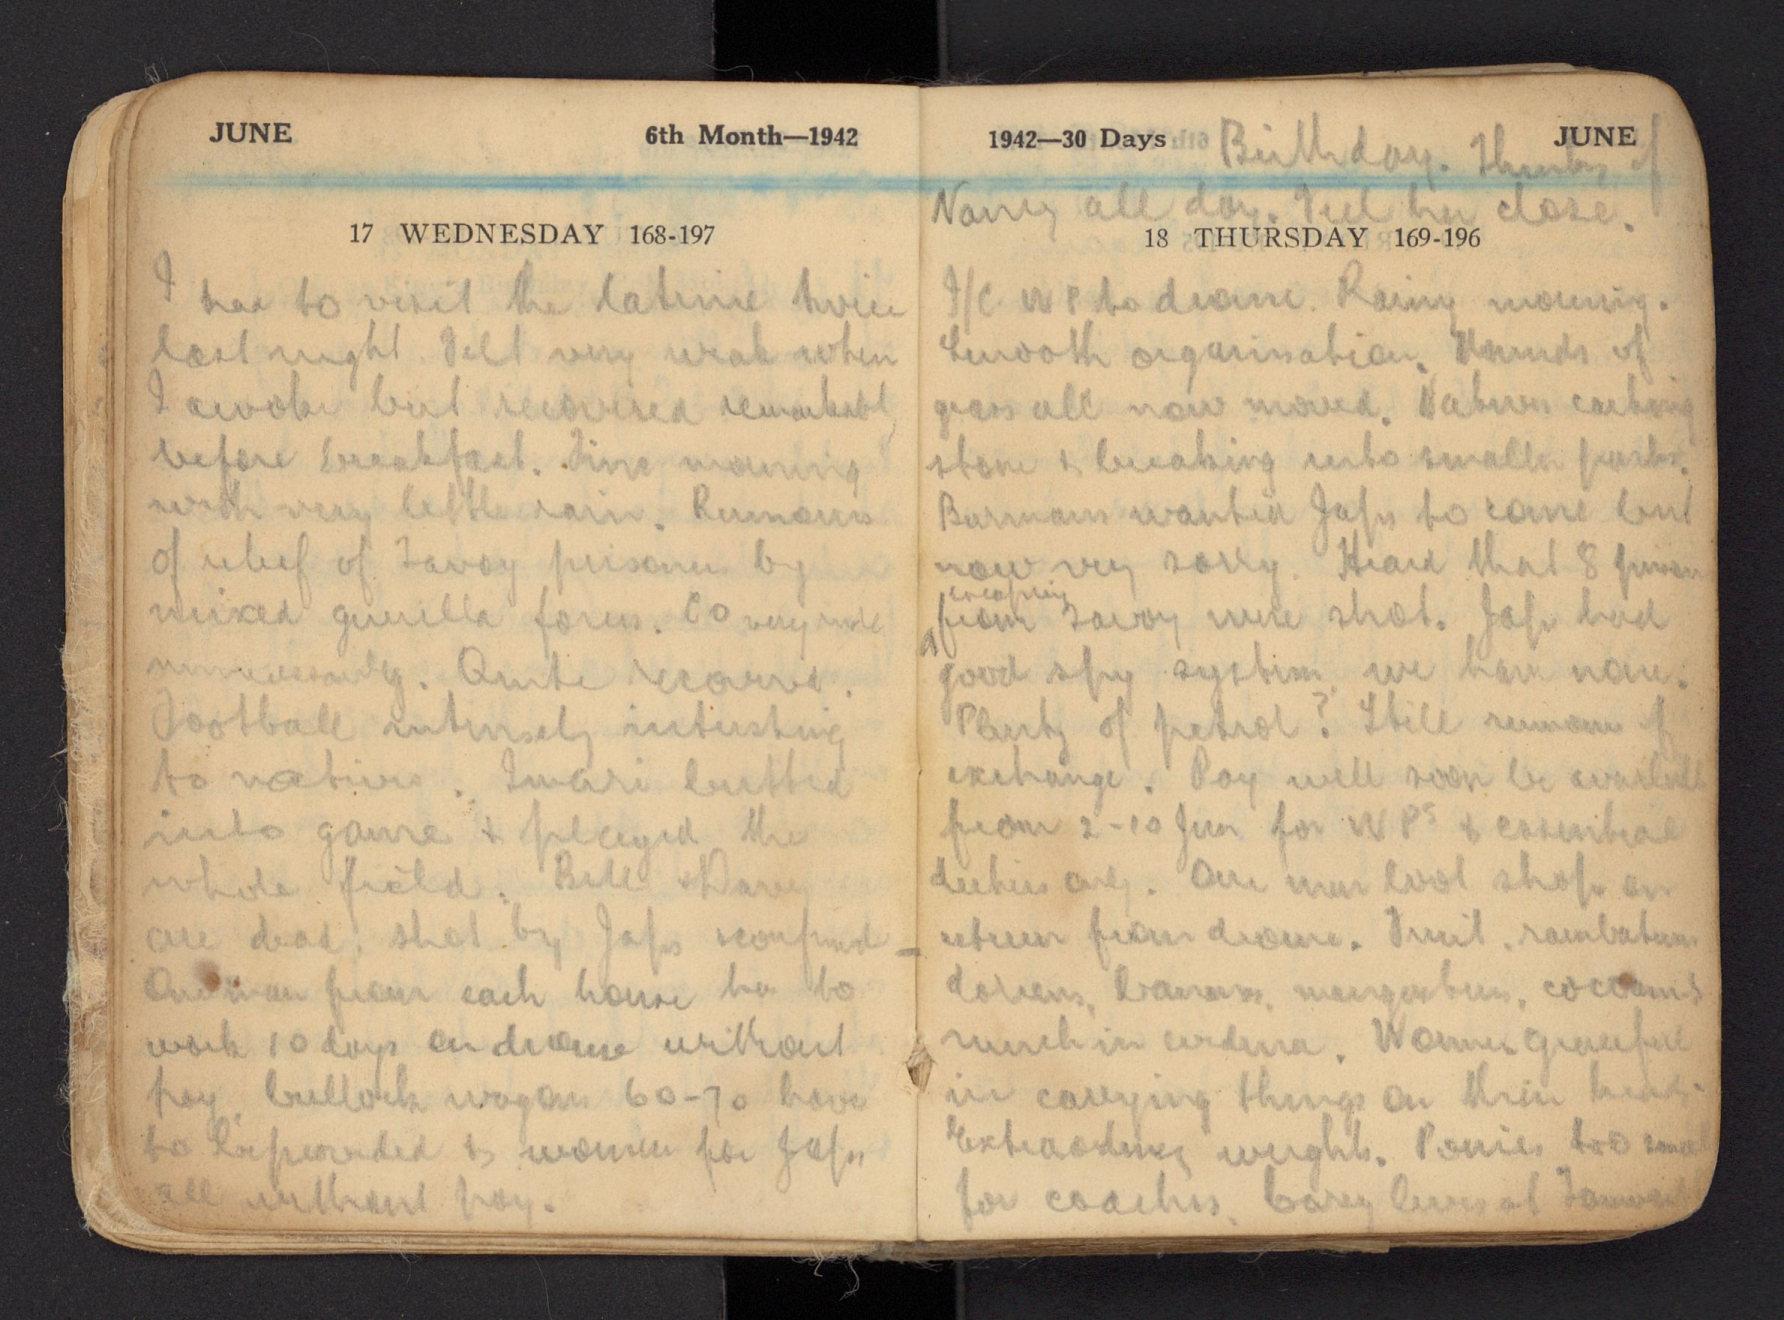 JUNE 6th Month—1942
17 WEDNESDAY 168-197
I had to visit the latrine twice
last night. Felt very weak when
I awoke but recovered remarkably
before breakfast. Fine morning
with very little rain. Rumours
of relief of Tavoy prisoners by
mixed guerilla forces. CO very rude
unnecessarily. Quite recovered.
Football intensely interesting
to natives. Imari butted
into game & played the
whole field. Bell & Davey
are dead, shot by Japs
One man from each house has to
work 10 days on drome without
pay, bullock wagons 60-70 have
to be provided & women for Japs
all without pay.
1942—30 Days JUNE
Birthday. Thinks of
Nancy all day. Feel her close.
18 THURSDAY 169-196
I/C WP to drome. Rainy morning.
Smooth organisation. Mounds of
grass all now moved. Natives carting
stone & breaking into smaller parts.
Burmans wanted Japs to come but
now very sorry. Heard that 8
escaping
from Tavoy were shot. Japs had
good spy system, we have none.
Plenty of petrol? Still rumours of
exchange. Pay will soon be available
from 2-10 Jun for WPs & essential
duties only. Our men loot shops on
return from drome. Fruit, rambatans
doriens, bananas, mangosteens, coconuts
much in evidence. Women graceful
in carrying things on their heads.
Extraordinary weights. Ponies too small
for coaches. Carey lives at